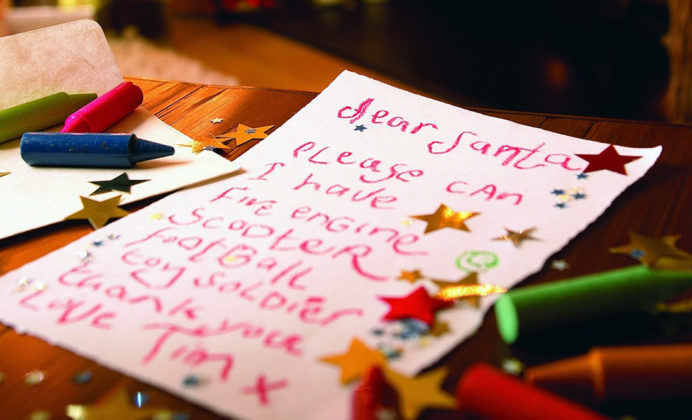 dear Santa
please can
I have
Fire engine
ScooteR
football
toy soldier
thank you
love
Tim x